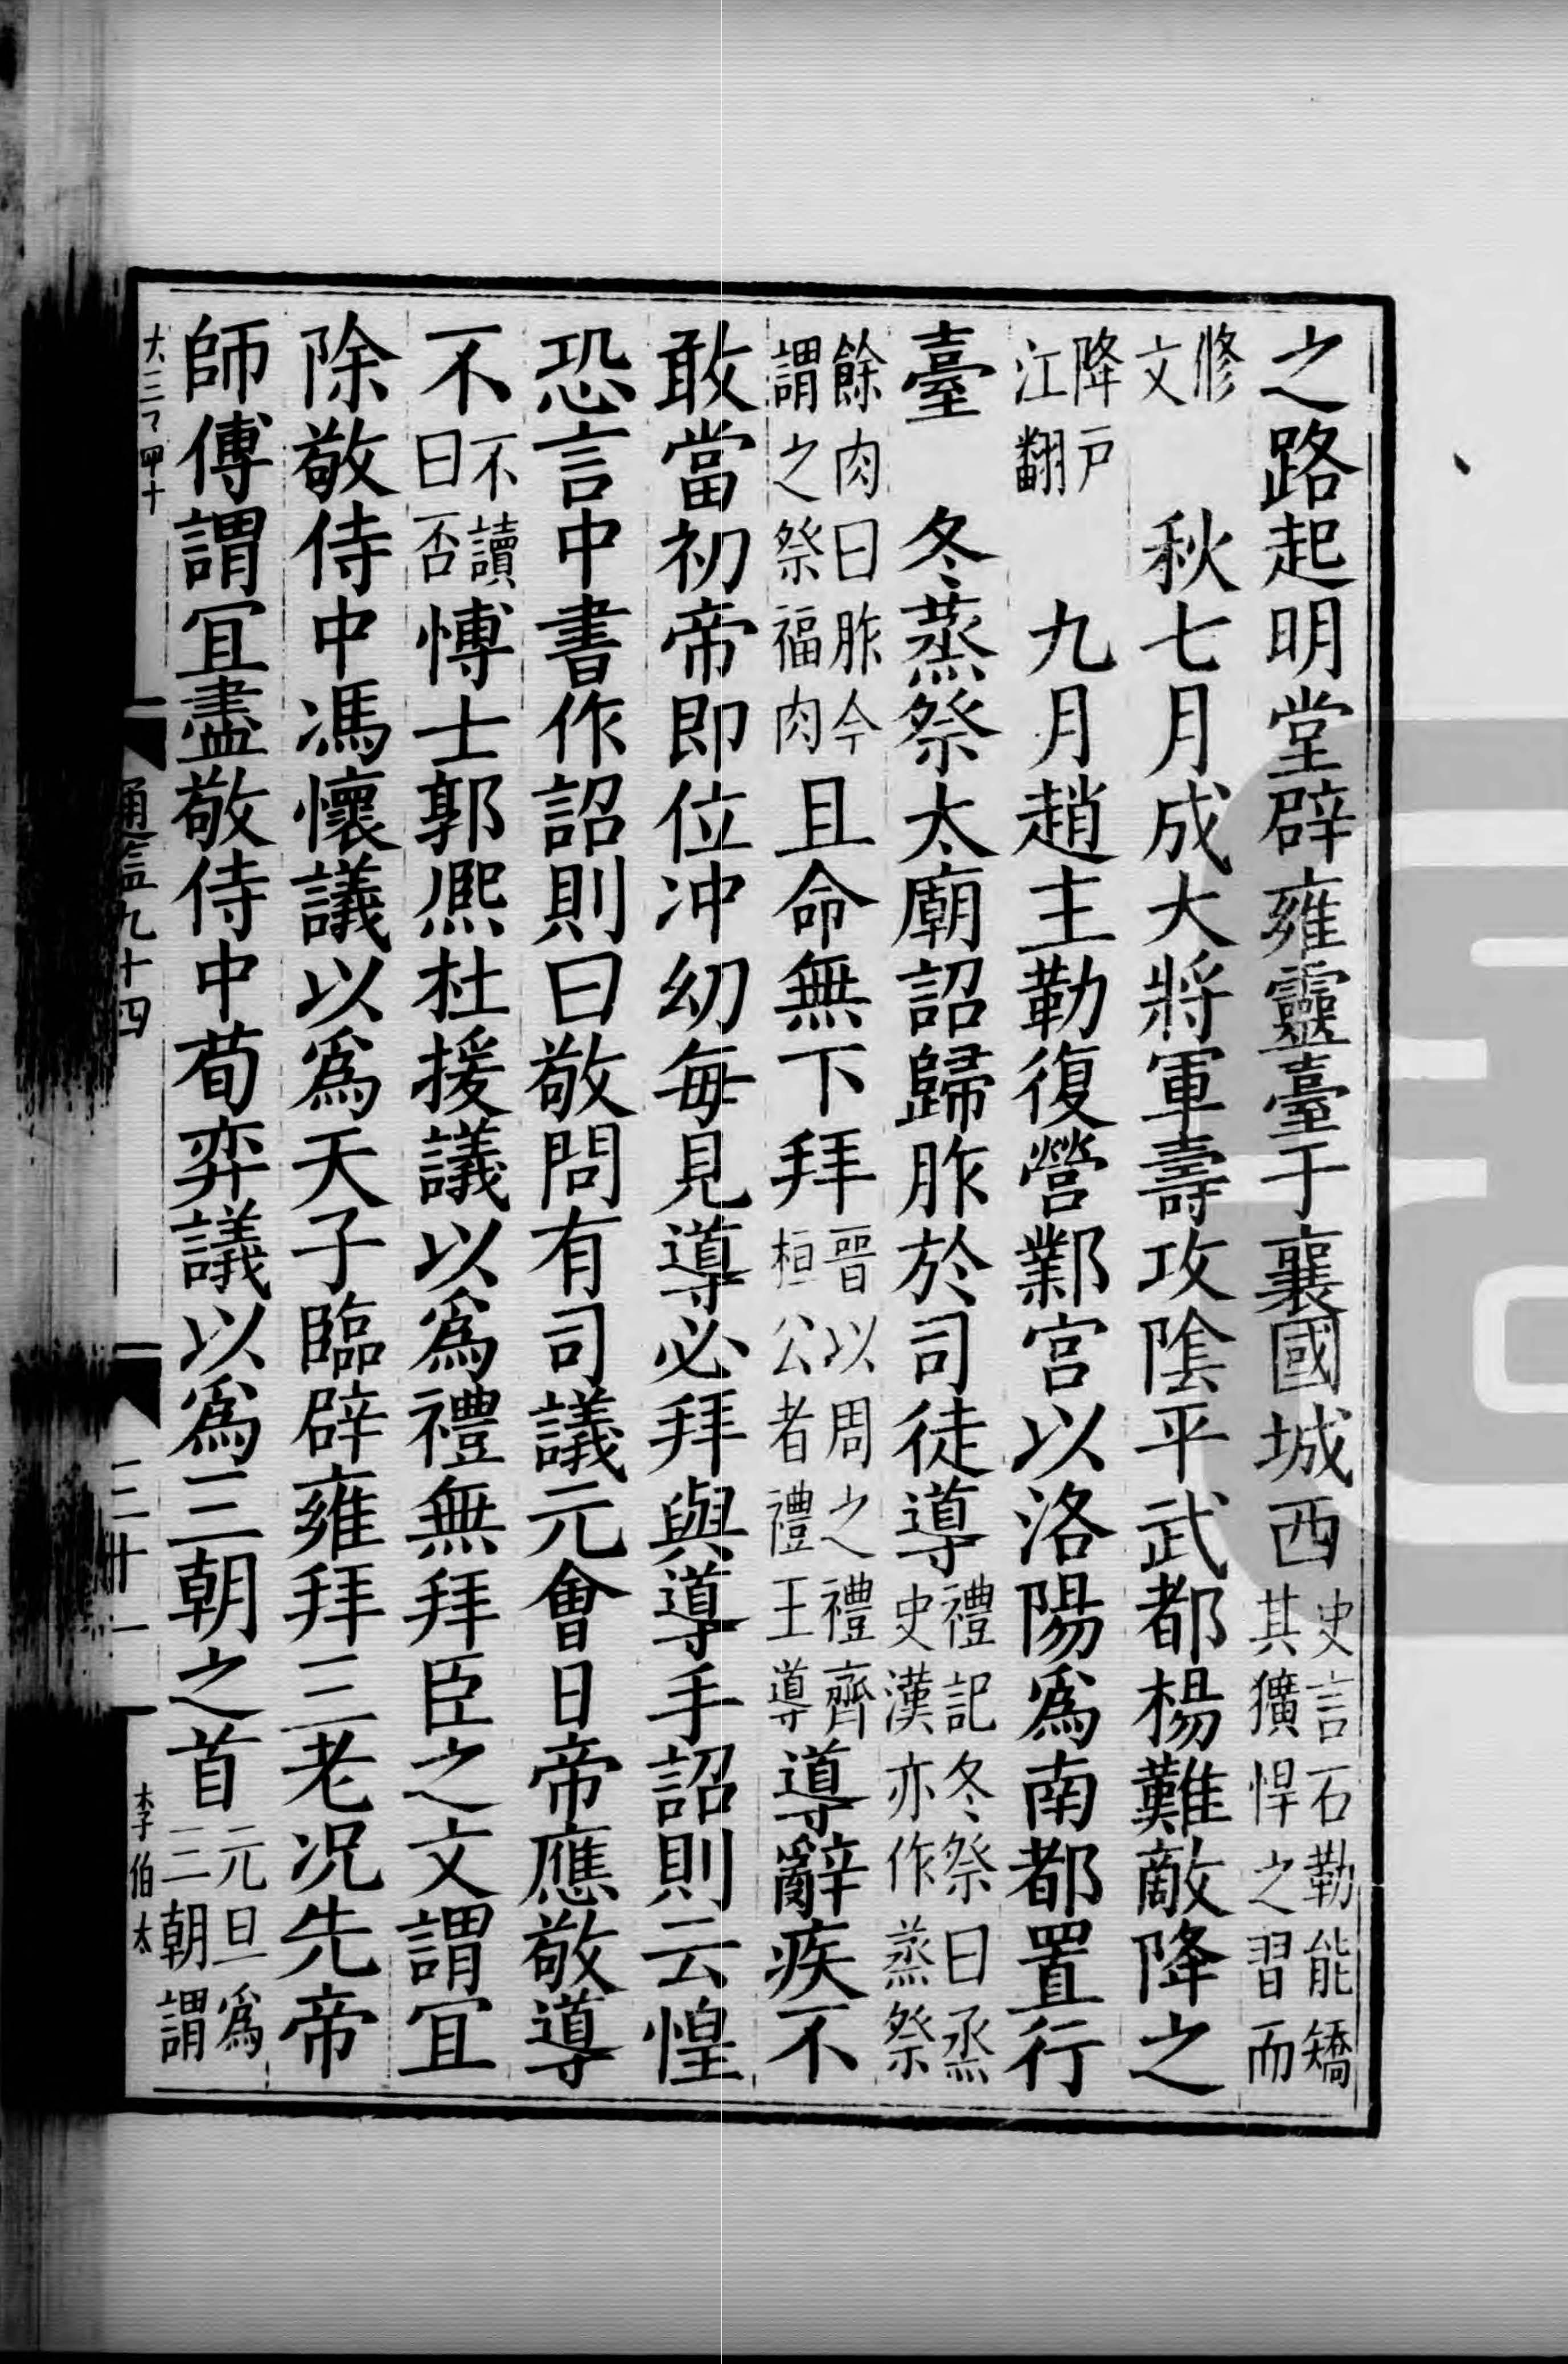 之路起明堂辟雍靈臺于襄國城西史言石勒能矯其獷悍之習而
修文 秋七月成大將軍壽攻陰平武都楊難敵降之
降戶江翻 九月趙主勒復營鄴宮以洛陽爲南都置行
臺 冬蒸祭太廟詔歸胙於司徒導禮記冬祭曰烝史漢亦作蒸祭
餘肉曰胙今謂之祭福肉且命無下拜晉以周之禮齊桓公者禮王導導辭疾不
敢當初帝即位沖幼每見導必拜與導手詔則云惶
恐言中書作詔則曰敬問有司議元會日帝應敬導
不不讀曰否博士郭熙杜援議以爲禮無拜臣之文謂宜
除敬侍中馮懷議以爲天子臨辟雍拜三老況先帝
師傅謂宜盡敬侍中荀弈議以爲三朝之首元旦爲三朝謂
通鑑九十四
李伯太